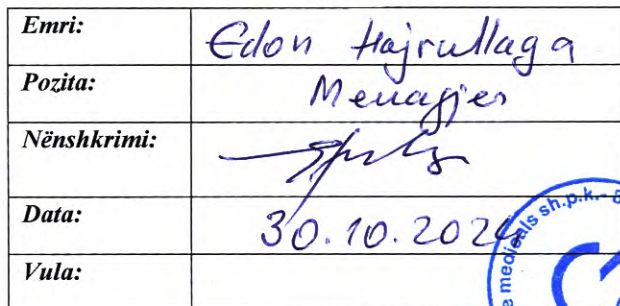 Emri: Edon Hajrullaga
Pozita: Menagjer
Nënshkrimi:
Data: 30.10.2024
Vula:
e medicals sh.p.k.- 8